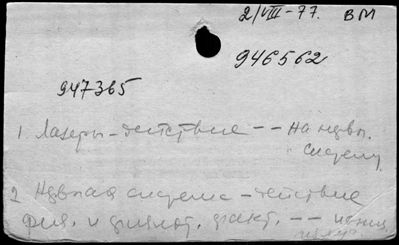 2/VIII-77. ВМ
946562
947365
1 Лазеры - действие -- на нервн.
систему
2 Нервная система - действие
физ. и факт. --